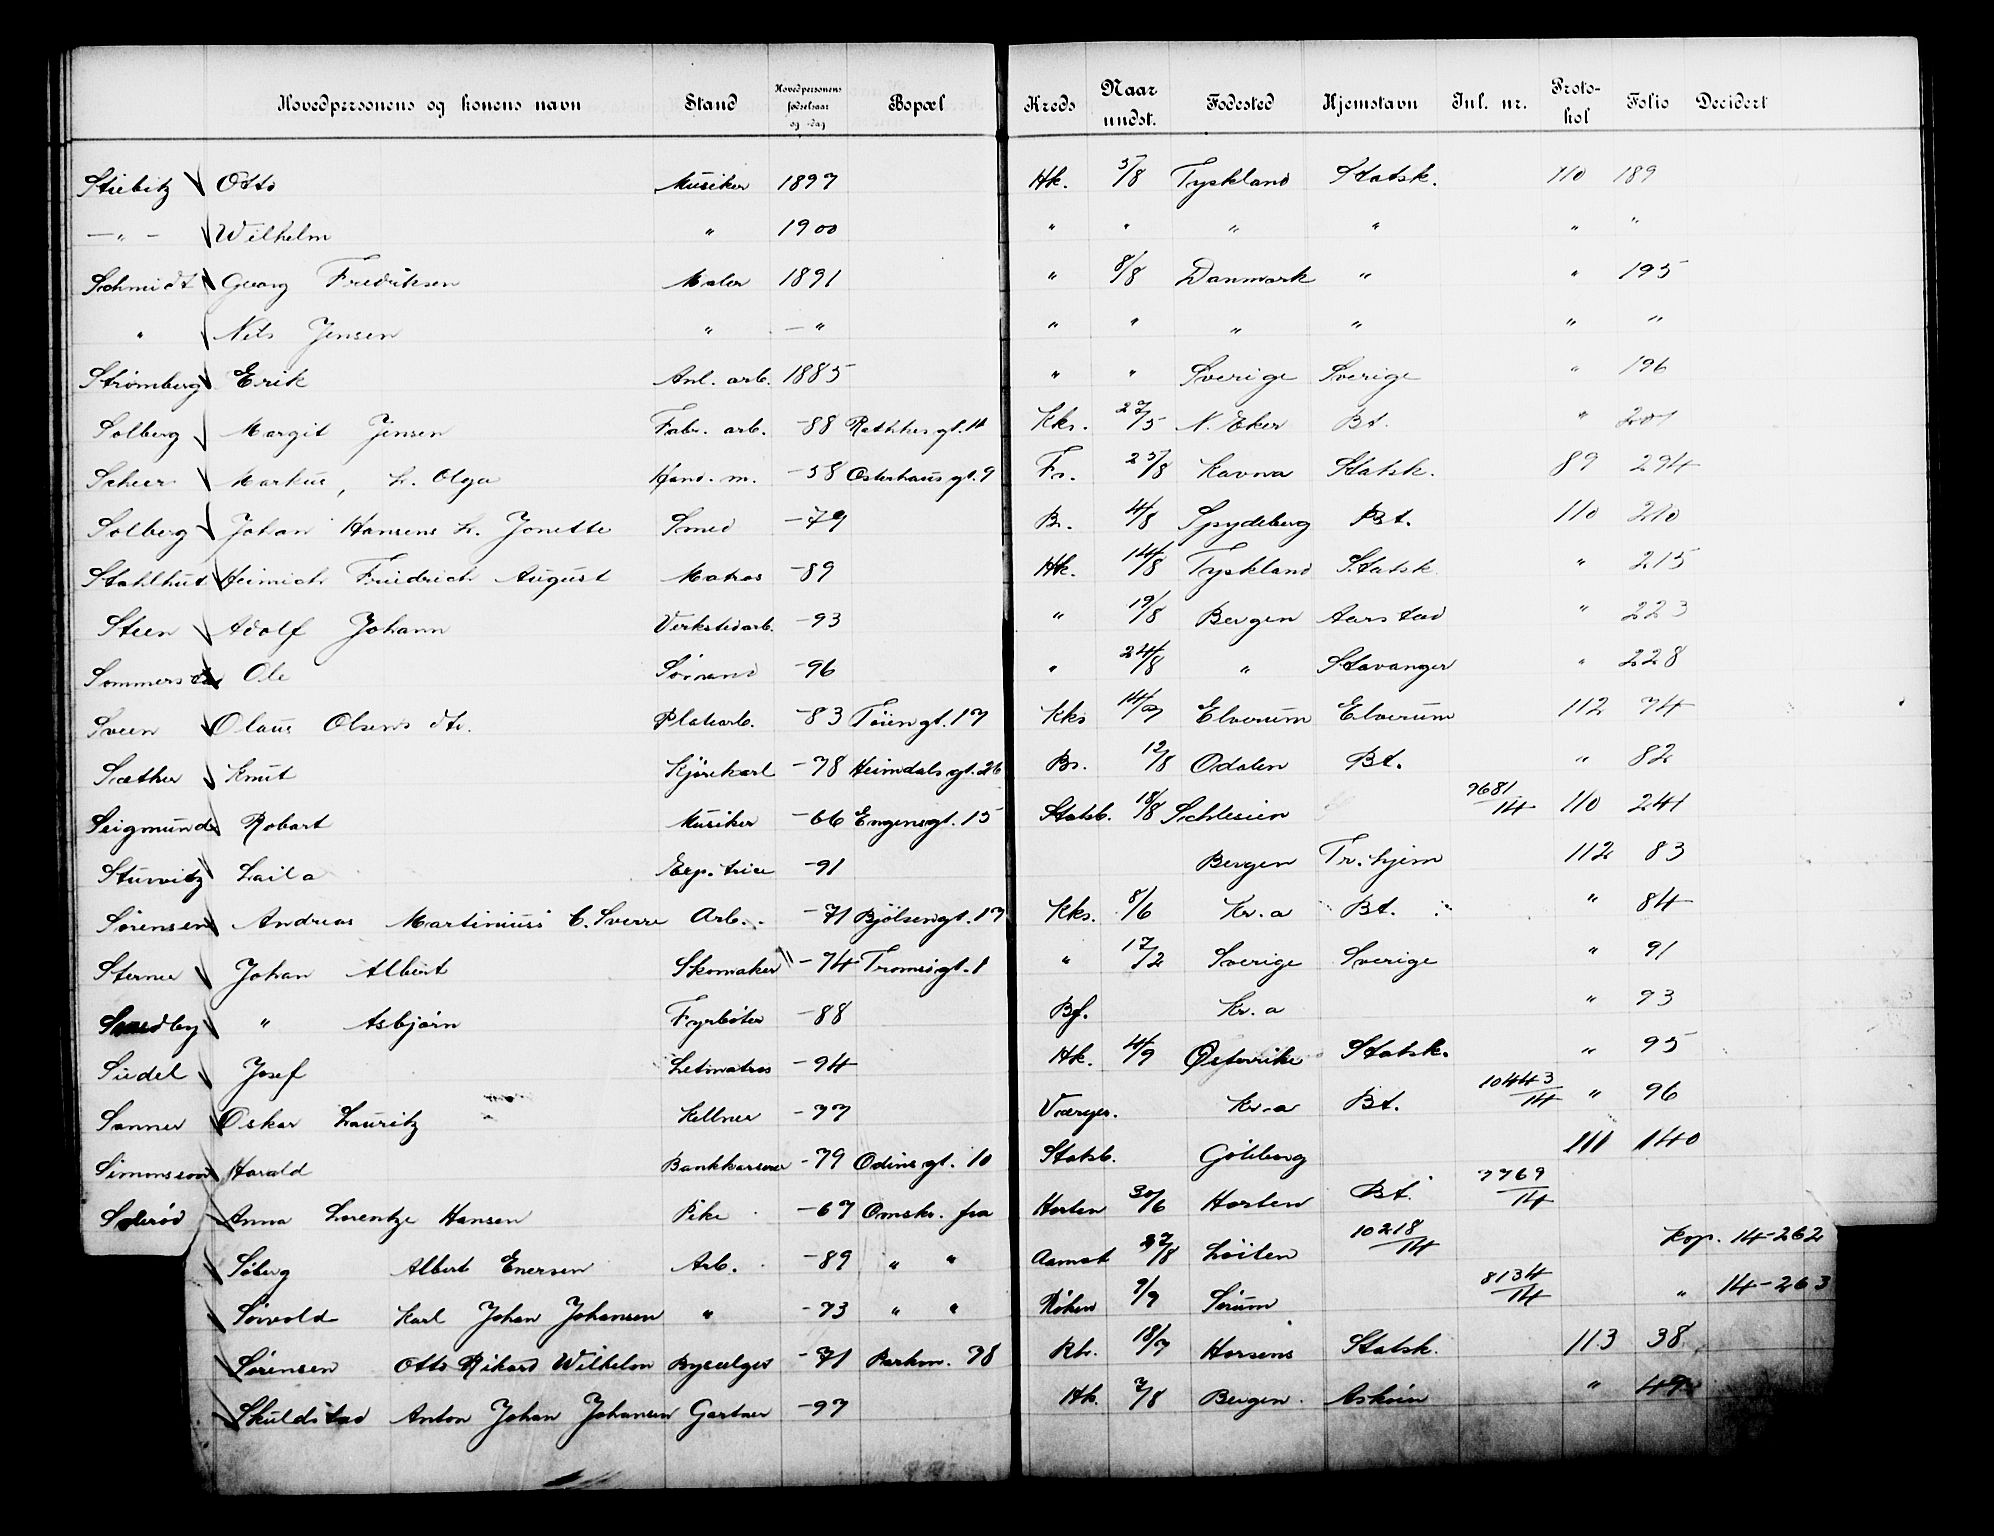 Hovedpersonens og konens navn Stand Hovedpersonens fødselsaar og -dag Bopæl Kreds Naar undst. Fødested Hjemstavn Jnl. nr. Proto- kol Folio Decidert
Stiebitz Otto Musiker 1897 Hk. 5/8 Tyskland Statsk. 110 189
—„— Wilhelm „ 1900 „ „ „ „ „ „
Schmidt Georg Fredriksen Maler 1891 „ 8/8 Danmark „ „ 195
„ Nils Jensen „ —„ „ „ „ „ „ „
Strømberg Erik Anl. arb. 1885 „ „ Sverige Sverige „ 196
Solberg Margit Jensen Fabr. arb. -88 Kks. 27/5 N. Eker Bt. „ 201
Scheer Markus, h. Olga Hand. m. -58 Osterhausgt. 9 Fr. 25/8 Kovna Statsk. 89 294
Solberg Johan Hansens h. Jonette Smed -79 Br. 4/8 Spydeberg Bt. 110 210
Stahlhut Heinrich Friedrich August Matros -89 Hk. 14/8 Tyskland Statsk. „ 215
Steen Adolf Johann Verkstedarb. -93 „ 19/8 Bergen Aarstad „ 223
Sommerstad Ole Sømand -96 „ 24/8 „ Stavanger „ 228
Sveen Olaus Olsens dtr. Platearb. -83 Tøiengt. 17 Kks 14/7 Elverum Elverum 112 74
Sæther Knut Kjørekarl -78 Heimdalsgt. 26 Br. 12/8 Odalen Bt. „ 82
Seigmund Robart Musiker -66 Engensgt. 15 Statsb. 18/8 Schlesien 9681/14 110 241
Sturvitz Laila Exp. trice -91 Bergen Tr.hjem 112 83
Sørensen Andreas Martiniuss C. Sverre Arb. -71 Bjølsengt. 17 Kks. 8/6 Kr.a Bt. „ 84
Sterner Johan Albert Skomaker -74 Tromsøgt. 1 „ 17/2 Sverige Sverige „ 91
Sandby „ Asbjørn Fyrbøter -88 Bf. Kr.a „ 93
Siedel Josef Letmatros -94 Hk. 4/9 Østerrike Statsk. „ 95
Sanner Oskar Lauritz Kellner -77 Værger. Kr.a Bt. 10443/14 „ 96
Simonsson Harald Bankkasserer -79 Odinsgt. 10 Statsb. Göteborg 111 140
Solerød Anna Lorentze Hansen Pike -67 Omskr. fra Horten 30/6 Horten Bt. 7769/14
Søberg Albert Enersen Arb. -89 „ „ Aamot 27/8 Løiten 10218/14 Kop. 14-262
Sørvold Karl Johan Johansen „ -73 „ „ Røken 9/9 Sørum 8134/14 „ 14-263
Sørensen Otto Rikard Wilhelm Byselger -71 Parkvn. 78 Rb. 18/7 Horsens Statsk. 113 38
Skuldstad Anton Johan Johansen Gartner -97 Hk. 7/8 Bergen. Askøen „ 49